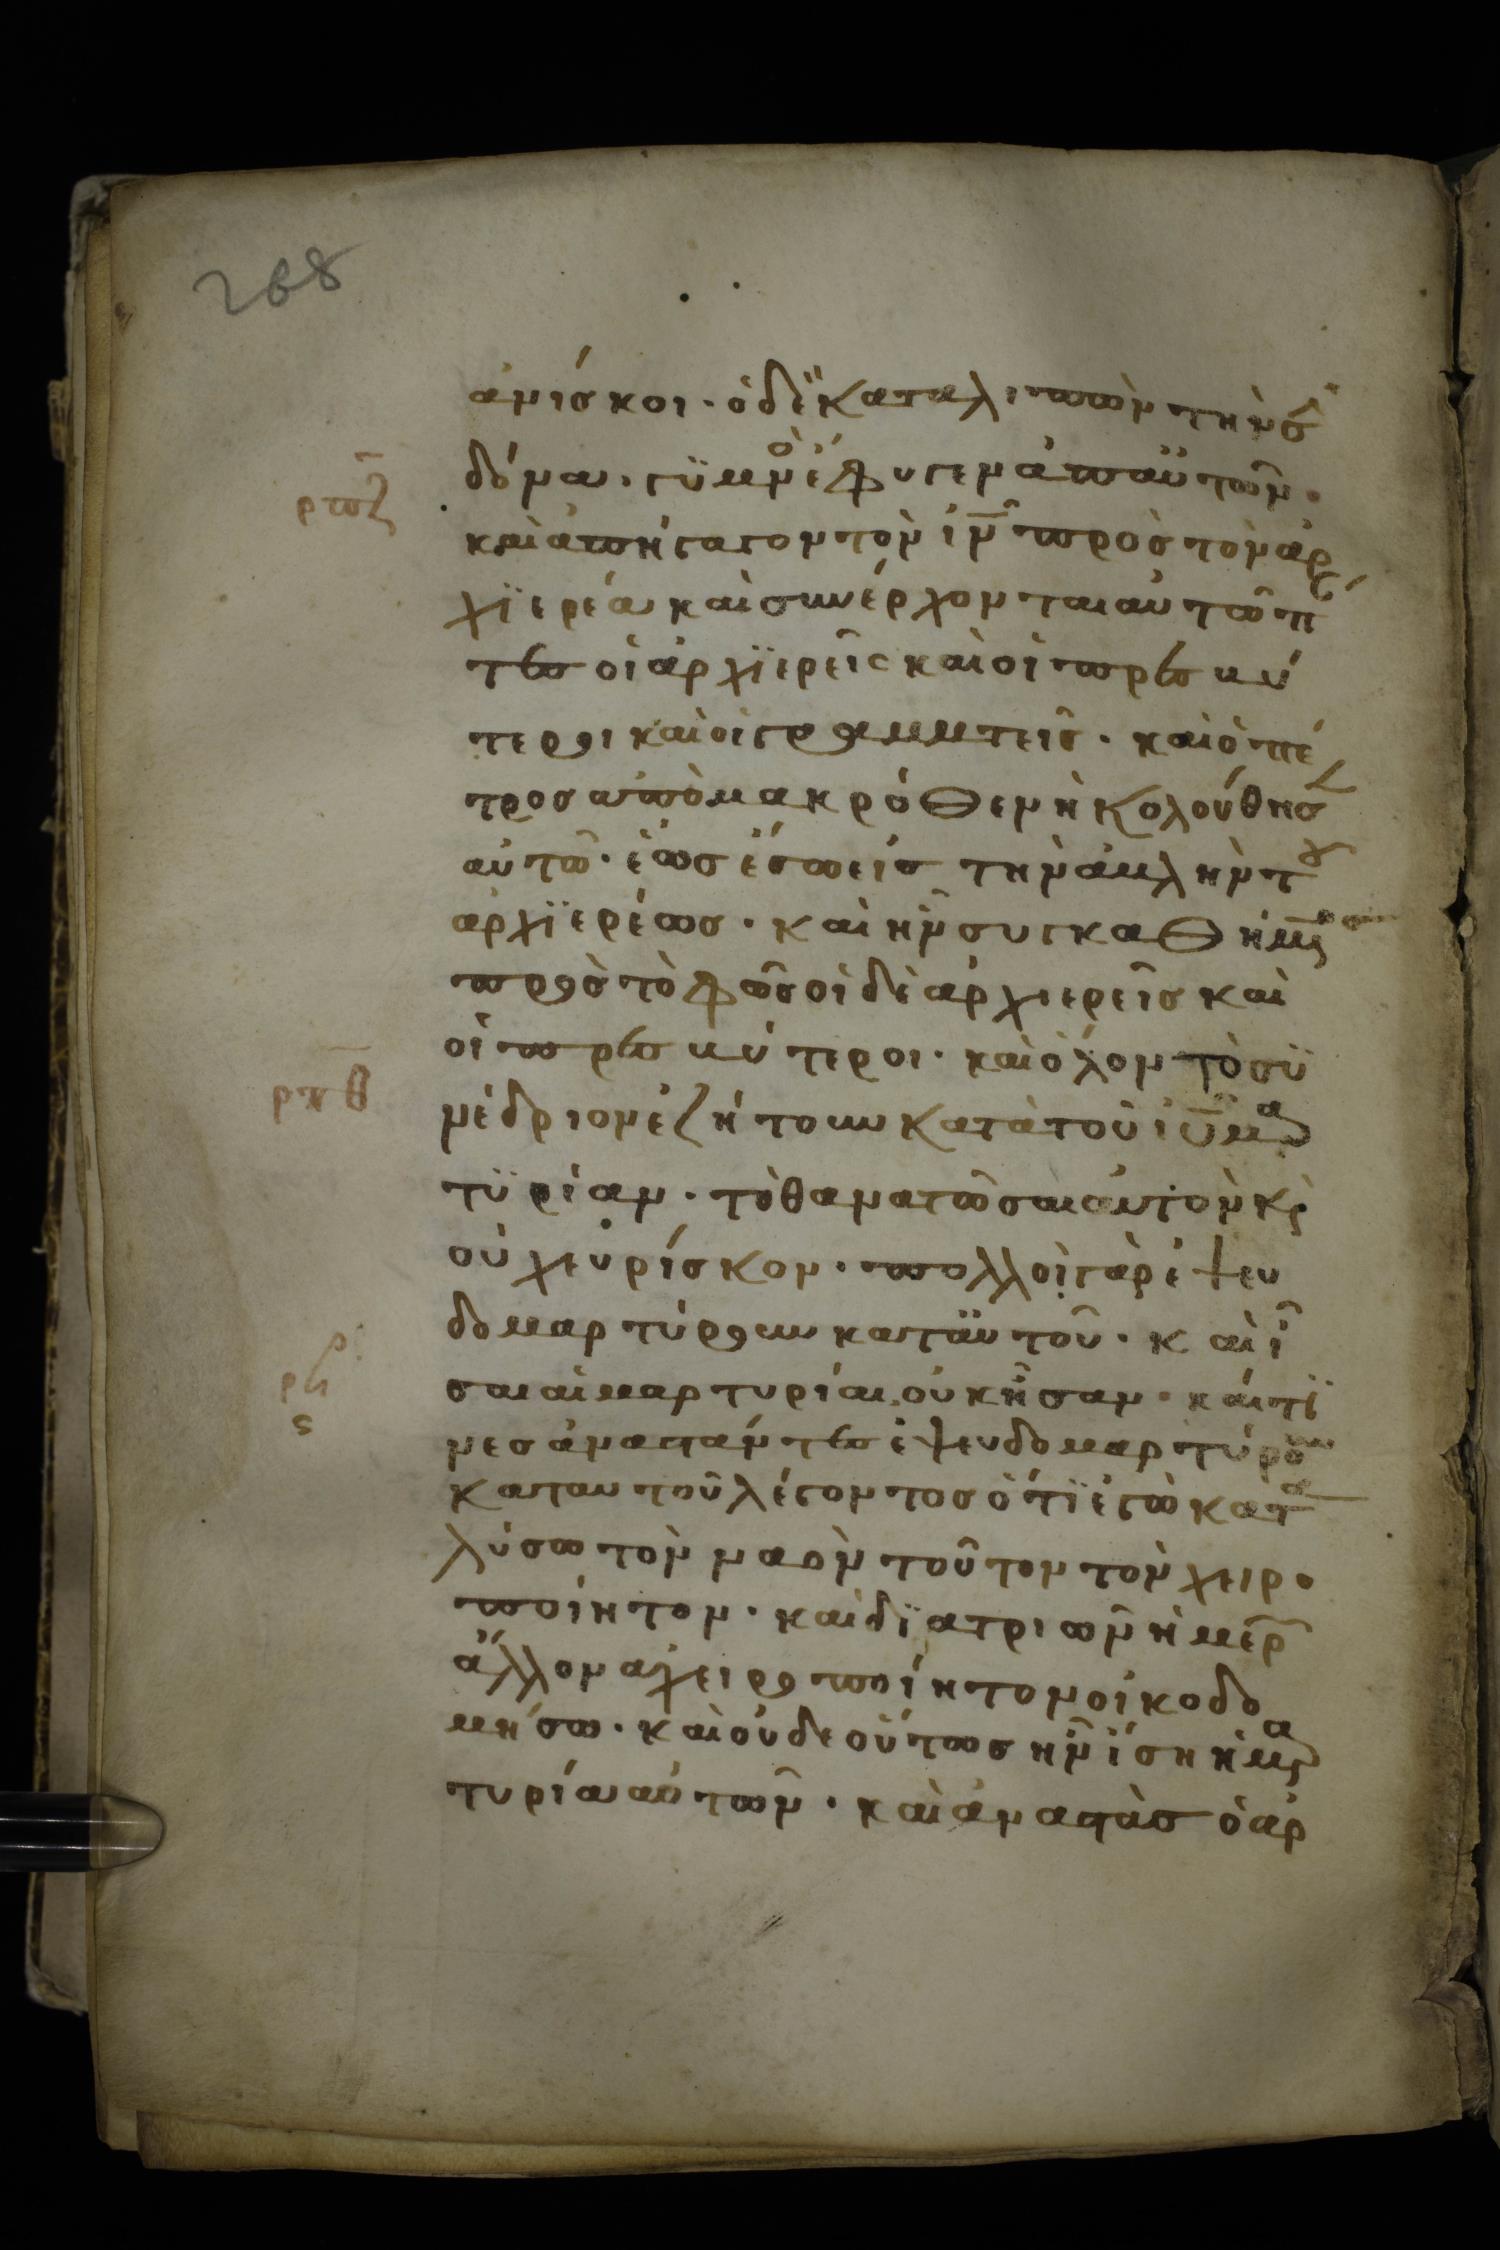 268
ανίσκοι· ὁ δὲ καταλιπὼν τὴν σϊ
δόνα· γϋμνὸς ἔφυγεν ἀπαὐτῶν·
καὶ ἀπήγαγον τὸν ιν̅ πρὸς τὸν ἀρ
χϊερέα καὶ συνέρχονται αὐτῶ πά
ντες οἱ ἀρχϊερεῖς καὶ οἱ πρεσβύ
τεροι καὶ οἱ γραμματεῖς· καὶ ὁ πέ
τρος ἀπὸ μακρόθεν ἠκολούθησεν
αὐτῶ· ἕως ἔσω εἰς τὴν ἀυλὴν τοῦ
ἀρχϊερέως· καὶ ἦν συγκαθήμενος
πρὸς τὸ φῶς οἱ δὲ ἀρχιερεῖς καὶ
οἱ πρεσβύτεροι· καὶ ὅλον τὸ συ
νέδριον ἐζήτουν κατὰ τοῦ ιυ̅ μαρ
τϋρίαν· τὸ θανατῶσαι αὐτὸν κὶ
οὐχ εὕρίσκον· πολλοὶ γὰρ ἐψευ
δομαρτύρουν καταὐτοῦ· καὶ ἴ
σαι αἱ μαρτυρίαι οὐκ ἦσαν· καί τϊ
νες ἀναστάντες ἐψευδομαρτύρουν
καταυτοῦ λέγοντος ὅτϊ ἐγὼ κατα
λύσω τὸν ναὸν τοῦτον τὸν χειρο
ποίητον· καὶ δϊατριῶν ἡμερ
ἄλλον ἀχειροποίητον οἰκοδο
μήσω· καὶ οὐδε οὕτως ἦν ἴση ἡ μαρ
τυρία αὐτῶν· καὶ ἀναστὰς ὁ ἀρ